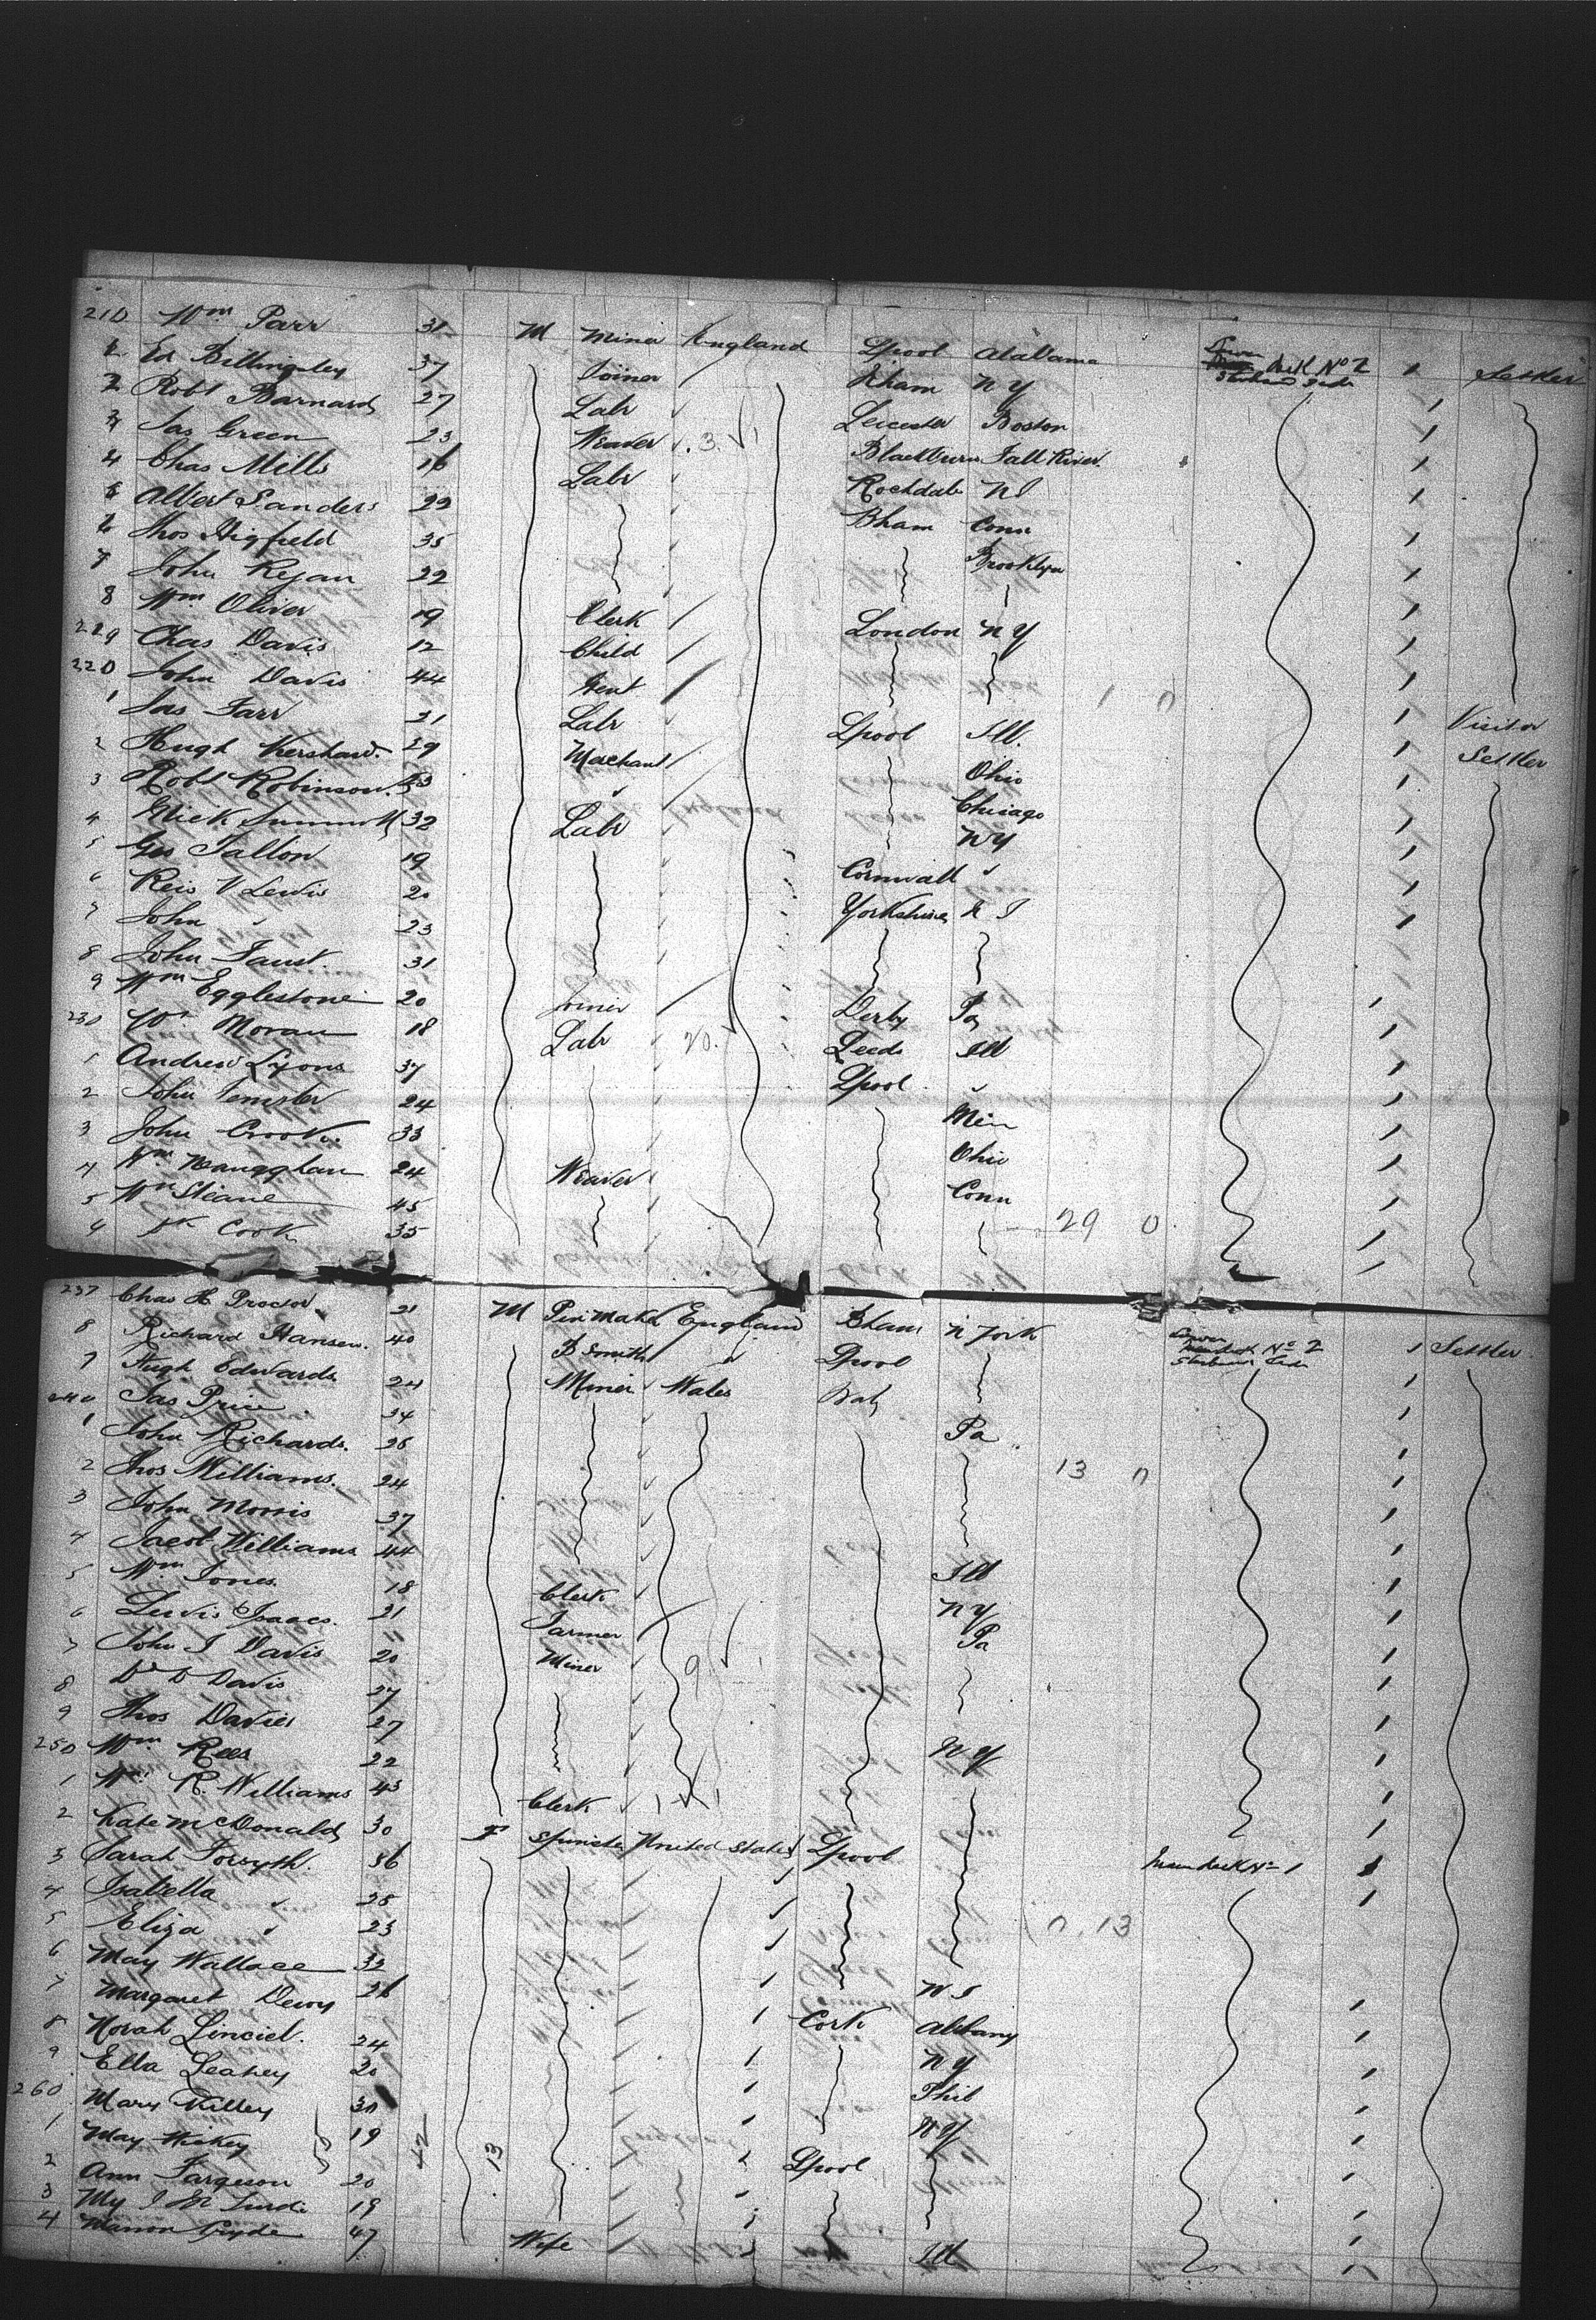 210 Wm Parr 31 M Miner England Lpool Alabama Lower Deck No 2 Starboard Side 1 Settler
Ed Billingsley 37 Joiner Bham N Y 1
2 Robt Barnard 27 Labr Leicester Boston 1
3 Jas Green 23 Weaver 3 Blackburn Fall River 1
4 Chas Mills 16 Labr Rochdale 1
Albert Sanders 22 Bham Conn 1
6 Thos Higfield 35 Brooklyn 1
7 John Ryan 22 1
8 Wm Oliver 19 Clerk London N Y 1
219 Chas Davis 12 Child 1
220 John Davis 44 Gent 1 0 1
1 Jas Farr 31 Labr Lpool Ill. 1 Visitor
2 Hugh Kershaw 29 Merchant Ohio 1 Settler
3 Robt Robinson Chicago 1
4 32 Labr N Y 1
5 Geo Fallon 19 Cornwall 1
6 Reis V Lewis 20 Yorkshire 1
7 John " 23 1
8 John Faust 31 1
9 Wm Egglestone 20 Joiner Derby Pa 1
230 Moran 18 Labr 20 Leeds Ill 1
1 Andrew Lyons 37 Lpool " 1
2 John 24 1
3 John Crook 33 Ohio 1
4 Wm 24 Weaver Conn 1
5 Wm 45 1
Cook 35 29 0 1
237 Chas H Proctor 21 M Pin Maker England Bham N York Lower No 2 1 Settler
8 Richard Hansen 40 B Smith Lpool 1
9 Hugh Edwards 24 Miner Wales 1
240 Jas Price 34 Pa 1
1 John Richards 26 13 0 1
2 Thos Williams 24 1
3 John Morris 37 1
4 Jacob Williams 44 Ill 1
5 Wm Jones 18 Clerk N Y 1
6 Lewis Isaacs 21 Farmer Pa 1
7 John J Davis 20 Miner 9 1
8 D D Davis 27 1
9 Thos Davies 27 1
250 Wm Rees 22 N Y 1
1 Wm R. Williams 43 Clerk 1 1
2 Kate McDonald 30 F Spinster United States Lpool 1
3 Sarah Forsyth 36 Main Deck No 1 1
4 Isabella " 28 1
5 Eliza " 23 0 13
6 May Wallace 32
7 Margaret Devoy 26 Cork Albany 1
8 Norah 24 N Y 1
9 Ella Leahey 20 Phil 1
260 Mary Killey 30 N Y 1
1 May Hickey 19 42 13 Lpool 1
2 Ann Fargeson 20 1
3 My 19 1
4 47 Wife Ill 1